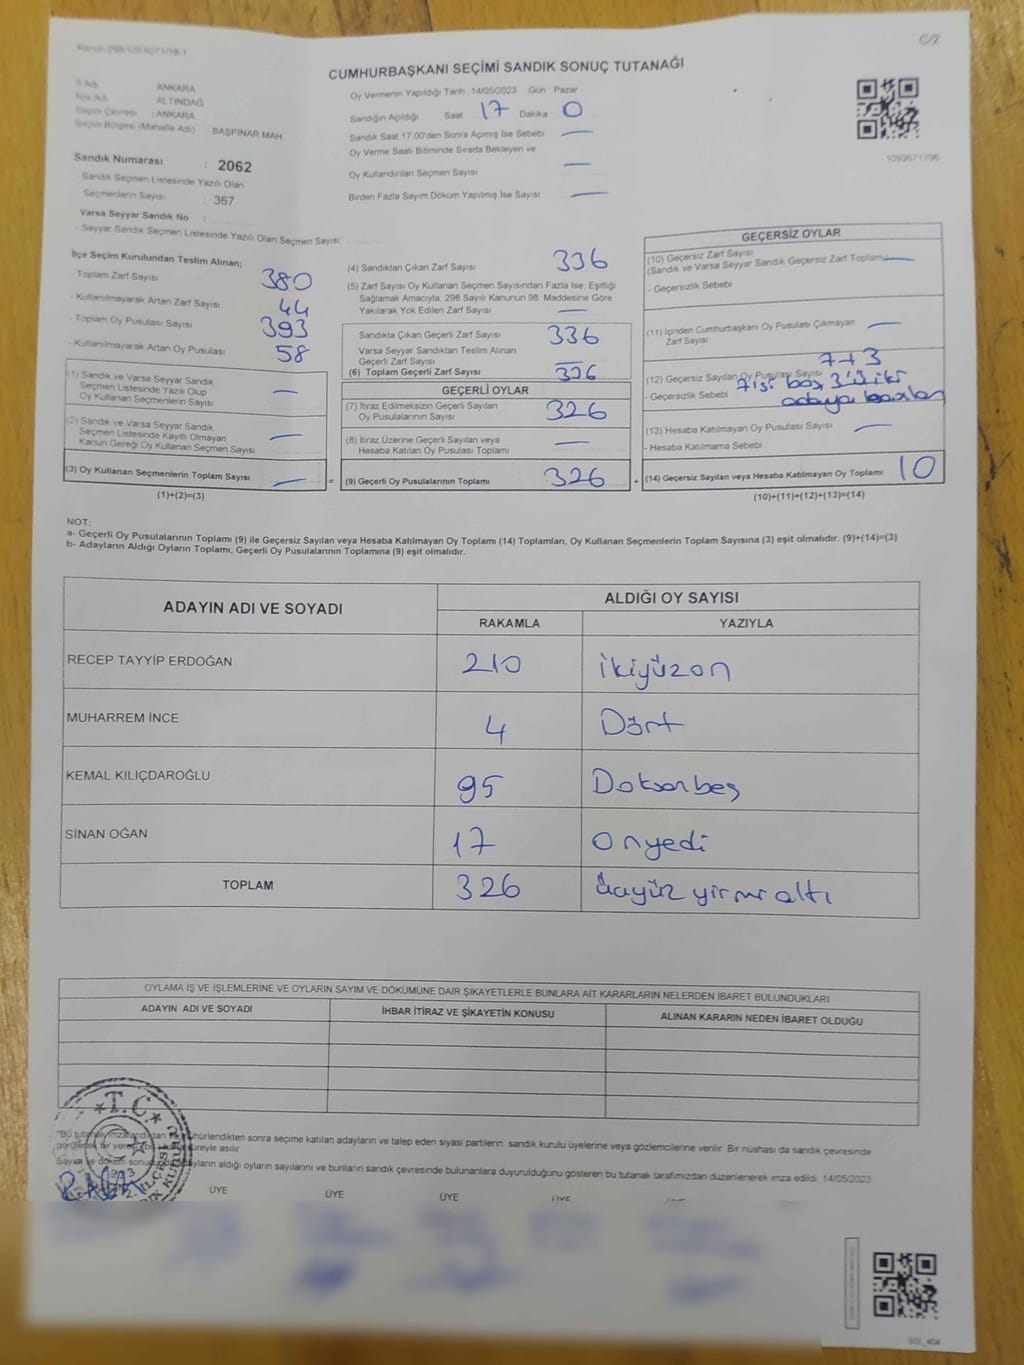 C/2
CUMHURBAŞKANI SEÇİMİ SANDIK SONUÇ TUTANAĞI
İl Adı : ANKARA
İlçe Adı : ALTINDAĞ
Seçim Çevresi : ANKARA
Seçim Bölgesi (Mahalle Adı) BAŞPINAR MAH.
Sandık Numarası : 2062
- Sandık Seçmen Listesinde Yazılı Olan
Seçmenlerin Sayısı : 367
Varsa Seyyar Sandık No :
- Seyyar Sandık Seçmen Listesinde Yazılı Olan Seçmen Sayısı
Oy Vermenin Yapıldığı Tarih 14/05/2023 Gün Pazar
Sandığın Açıldığı Saat 17 Dakika 0
Sandık Saat 17:00'den Sonra Açılmış İse Sebebi —
Oy Verme Saati Bitiminde Sırada Bekleyen ve
Oy Kullandırılan Seçmen Sayısı —
Birden Fazla Sayım Döküm Yapılmış İse Sayısı —
1093671796
İlçe Seçim Kurulundan Teslim Alınan;
- Toplam Zarf Sayısı 380
- Kullanılmayarak Artan Zarf Sayısı 44
- Toplam Oy Pusulası Sayısı 393
- Kullanılmayarak Artan Oy Pusulası 58
(1) Sandık ve Varsa Seyyar Sandık
Seçmen Listesinde Yazılı Olup
Oy Kullanan Seçmenlerin Sayısı —
(2) Sandık ve Varsa Seyyar Sandık
Seçmen Listesinde Kayıtlı Olmayan
Kanun Gereği Oy Kullanan Seçmen Sayısı —
(3) Oy Kullanan Seçmenlerin Toplam Sayısı —
(1)+(2)=(3)
=
(4) Sandıktan Çıkan Zarf Sayısı 336
(5) Zarf Sayısı Oy Kullanan Seçmen Sayısından Fazla İse, Eşitliği
Sağlamak Amacıyla, 298 Sayılı Kanunun 98. Maddesine Göre
Yakılarak Yok Edilen Zarf Sayısı —
Sandıkta Çıkan Geçerli Zarf Sayısı 336
Varsa Seyyar Sandıktan Teslim Alınan
Geçerli Zarf Sayısı —
(6) Toplam Geçerli Zarf Sayısı 336
GEÇERLİ OYLAR
(7) İtiraz Edilmeksizin Geçerli Sayılan
Oy Pusulalarının Sayısı 326
(8) İtiraz Üzerine Geçerli Sayılan veya
Hesaba Katılan Oy Pusulası Toplamı —
(9) Geçerli Oy Pusulalarının Toplamı 326
+
GEÇERSİZ OYLAR
(10) Geçersiz Zarf Sayısı
(Sandık ve Varsa Seyyar Sandık Geçersiz Zarf Toplamı) —
- Geçersizlik Sebebi
(11) İçinden Cumhurbaşkanı Oy Pusulası Çıkmayan
Zarf Sayısı —
(12) Geçersiz Sayılan Oy Pusulası Sayısı 7+3
- Geçersizlik Sebebi 7'si boş 3'ü iki
adaya basılan
(13) Hesaba Katılmayan Oy Pusulası Sayısı —
- Hesaba Katılmama Sebebi
(14) Geçersiz Sayılan veya Hesaba Katılmayan Oy Toplamı 10
(10)+(11)+(12)+(13)=(14)
NOT:
a- Geçerli Oy Pusulalarının Toplamı (9) ile Geçersiz Sayılan veya Hesaba Katılmayan Oy Toplamı (14) Toplamları, Oy Kullanan Seçmenlerin Toplam Sayısına (3) eşit olmalıdır. (9)+(14)=(3)
b- Adayların Aldığı Oyların Toplamı, Geçerli Oy Pusulalarının Toplamına (9) eşit olmalıdır.
ADAYIN ADI VE SOYADI ALDIĞI OY SAYISI
RAKAMLA YAZIYLA
RECEP TAYYİP ERDOĞAN 210 ikiyüzon
MUHARREM İNCE 4 Dört
KEMAL KILIÇDAROĞLU 95 Doksanbeş
SİNAN OĞAN 17 onyedi
TOPLAM 326 üçyüz yirmi altı
OYLAMA İŞ VE İŞLEMLERİNE VE OYLARIN SAYIM VE DÖKÜMÜNE DAİR ŞİKAYETLERLE BUNLARA AİT KARARLARIN NELERDEN İBARET BULUNDUKLARI
ADAYIN ADI VE SOYADI İHBAR İTİRAZ VE ŞİKAYETİN KONUSU ALINAN KARARIN NEDEN İBARET OLDUĞU
T.C.
"Bu tutanak imzalandıktan ve mühürlendikten sonra seçime katılan adayların ve talep eden siyasi partilerin sandık kurulu üyelerine veya gözlemcilerine verilir. Bir nüshası da sandık çevresinde
asılır
adayların aldığı oyların sayılarını ve bunların sandık çevresinde bulunanlara duyurulduğunu gösteren bu tutanak tarafımızdan düzenlenerek imza edildi. 14/05/2023
ÜYE ÜYE ÜYE ÜYE